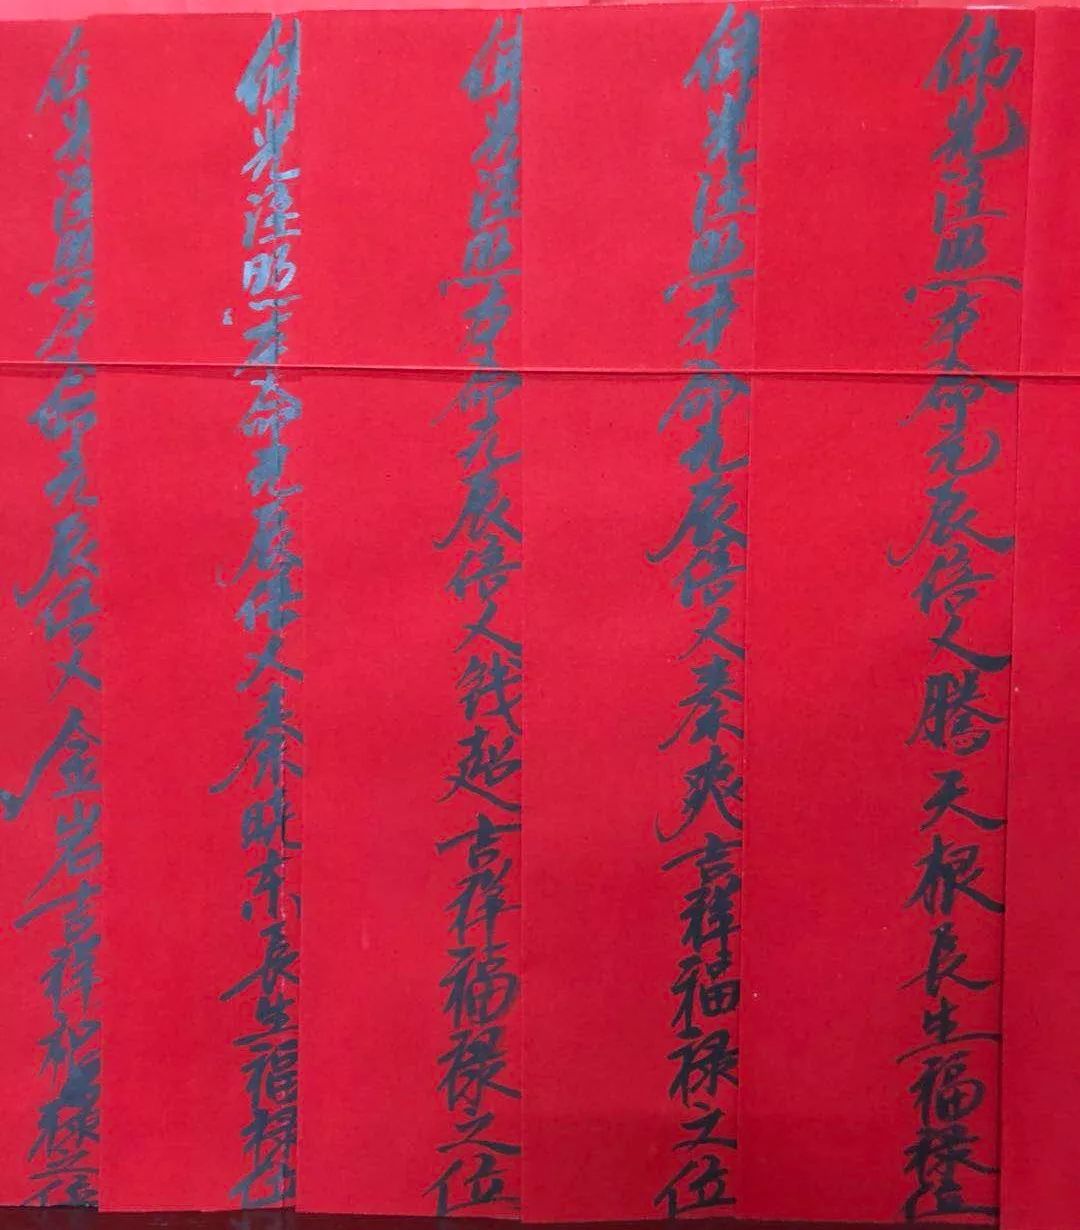 佛光注照本命元辰信人腾天根长生福禄位
佛光注照本命元辰信人秦爽吉祥福禄之位
佛光注照本命元辰信人钱超吉祥福禄之位
佛光注照本命元辰信人秦晓东长生福禄位
佛光注照本命元辰信人金岩吉祥福禄之位